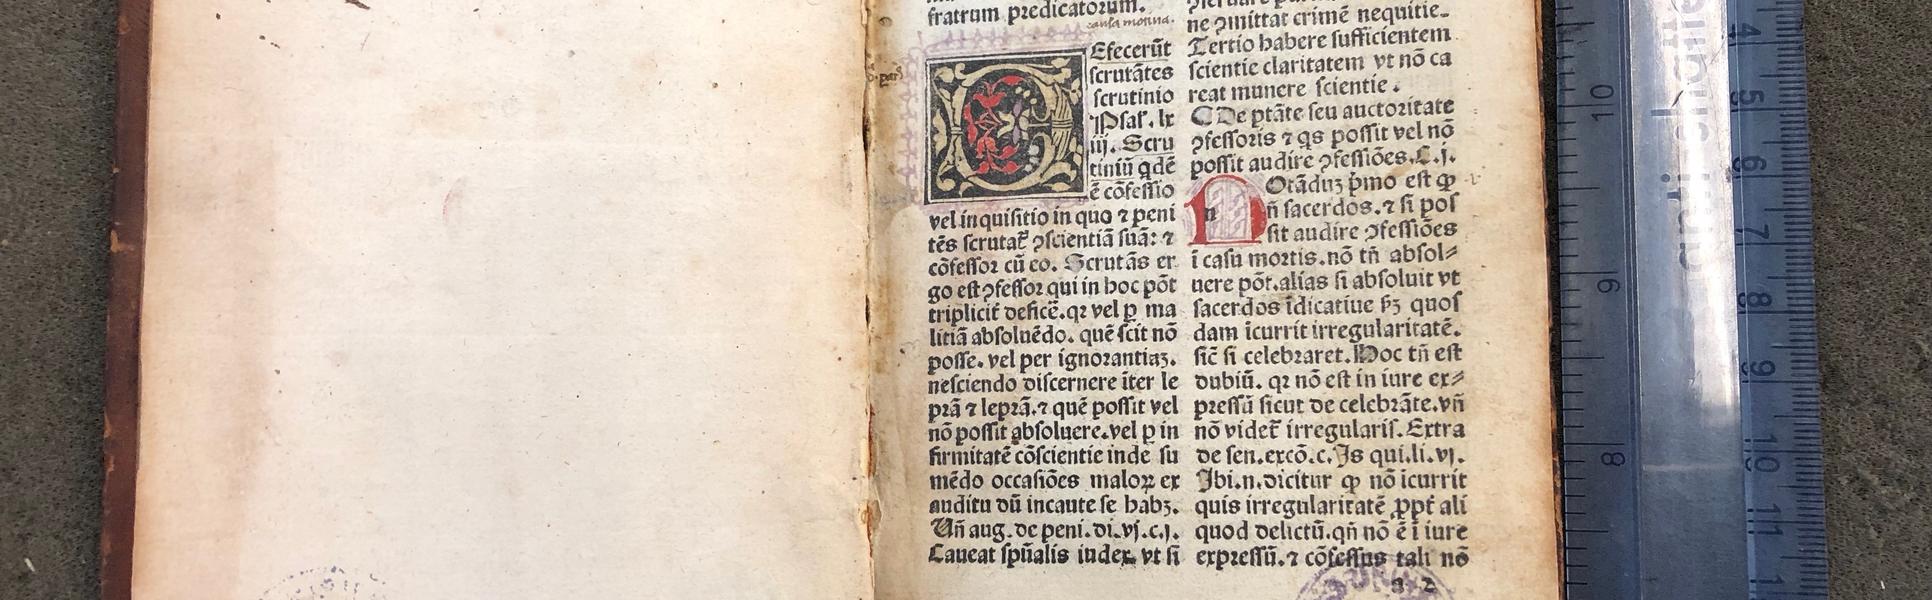 fratrum predicatorum.
causa motiua.
Efecerūt
scrutātes
scrutinio
Psal'. lx
iij. Scru
tiniū qdē
ē cōfessio
vel inquisitio in quo ⁊ peni
tēs scrutat̄ ꝯscientiā suā: ⁊
cōfessor cū eo. Scrutās er
go est ꝯfessor qui in hoc pōt
triplicit̄ deficē. qꝛ vel ꝑ ma
litiā absoluēdo. quē scit nō
posse. vel per ignorantiaꝫ.
nesciendo discernere īter le
prā ⁊ leprā. ⁊ quē possit vel
nō possit absoluere. vel ꝑ in
firmitatē cōscientie inde su
mēdo occasiōes maloꝝ ex
auditu dū incaute se habꝫ.
Un̄ aug. de peni. di. vj. c. j.
Caueat spūalis iudex vt si
ne ꝯmittat crimē nequitie.
Tertio habere sufficientem
scientie claritatem vt nō ca
reat munere scientie.
De ptāte seu auctoritate
ꝯfessoris ⁊ qs possit vel nō
possit audire ꝯfessiōes. C. j.
Notāduꝫ p̄mo est ꝙ
n̄ sacerdos. ⁊ si pos
sit audire ꝯfessiōes
ī casu mortis. nō tn̄ absol⸗
uere pōt. alias si absoluit vt
sacerdos īdicatiue ẜꝫ quos
dam īcurrit irregularitatē.
sic̄ si celebraret. Hoc tn̄ est
dubiū. qꝛ nō est in iure ex⸗
pressū sicut de celebrāte. vn̄
nō videt̄ irregularis. Extra
de sen. excō. c. Is qui. li. vj.
Ibi. n. dicitur ꝙ nō icurrit
quis irregularitatē ꝓpt̄ ali
quod delictū. qn̄ nō ē ī iure
expressū. ⁊ cōfessus tali nō
a 2
4
5
6
7
8
9
10
11
10
9
8